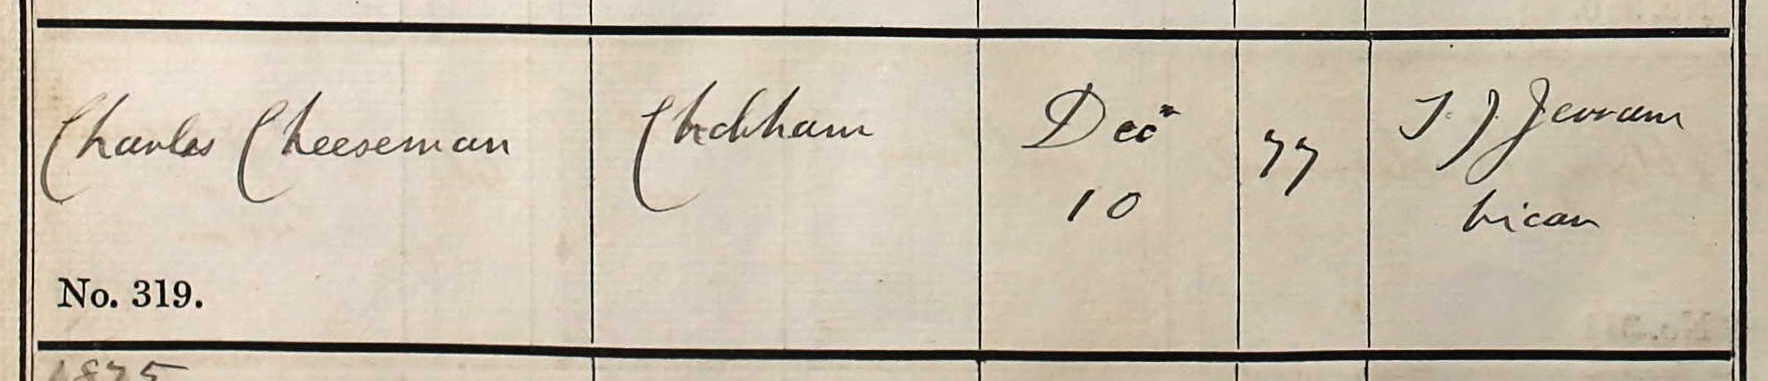 Charles Cheeseman
Chobham
Decr
10
77
S. J. Jerram
Vicar
No. 319.
1875